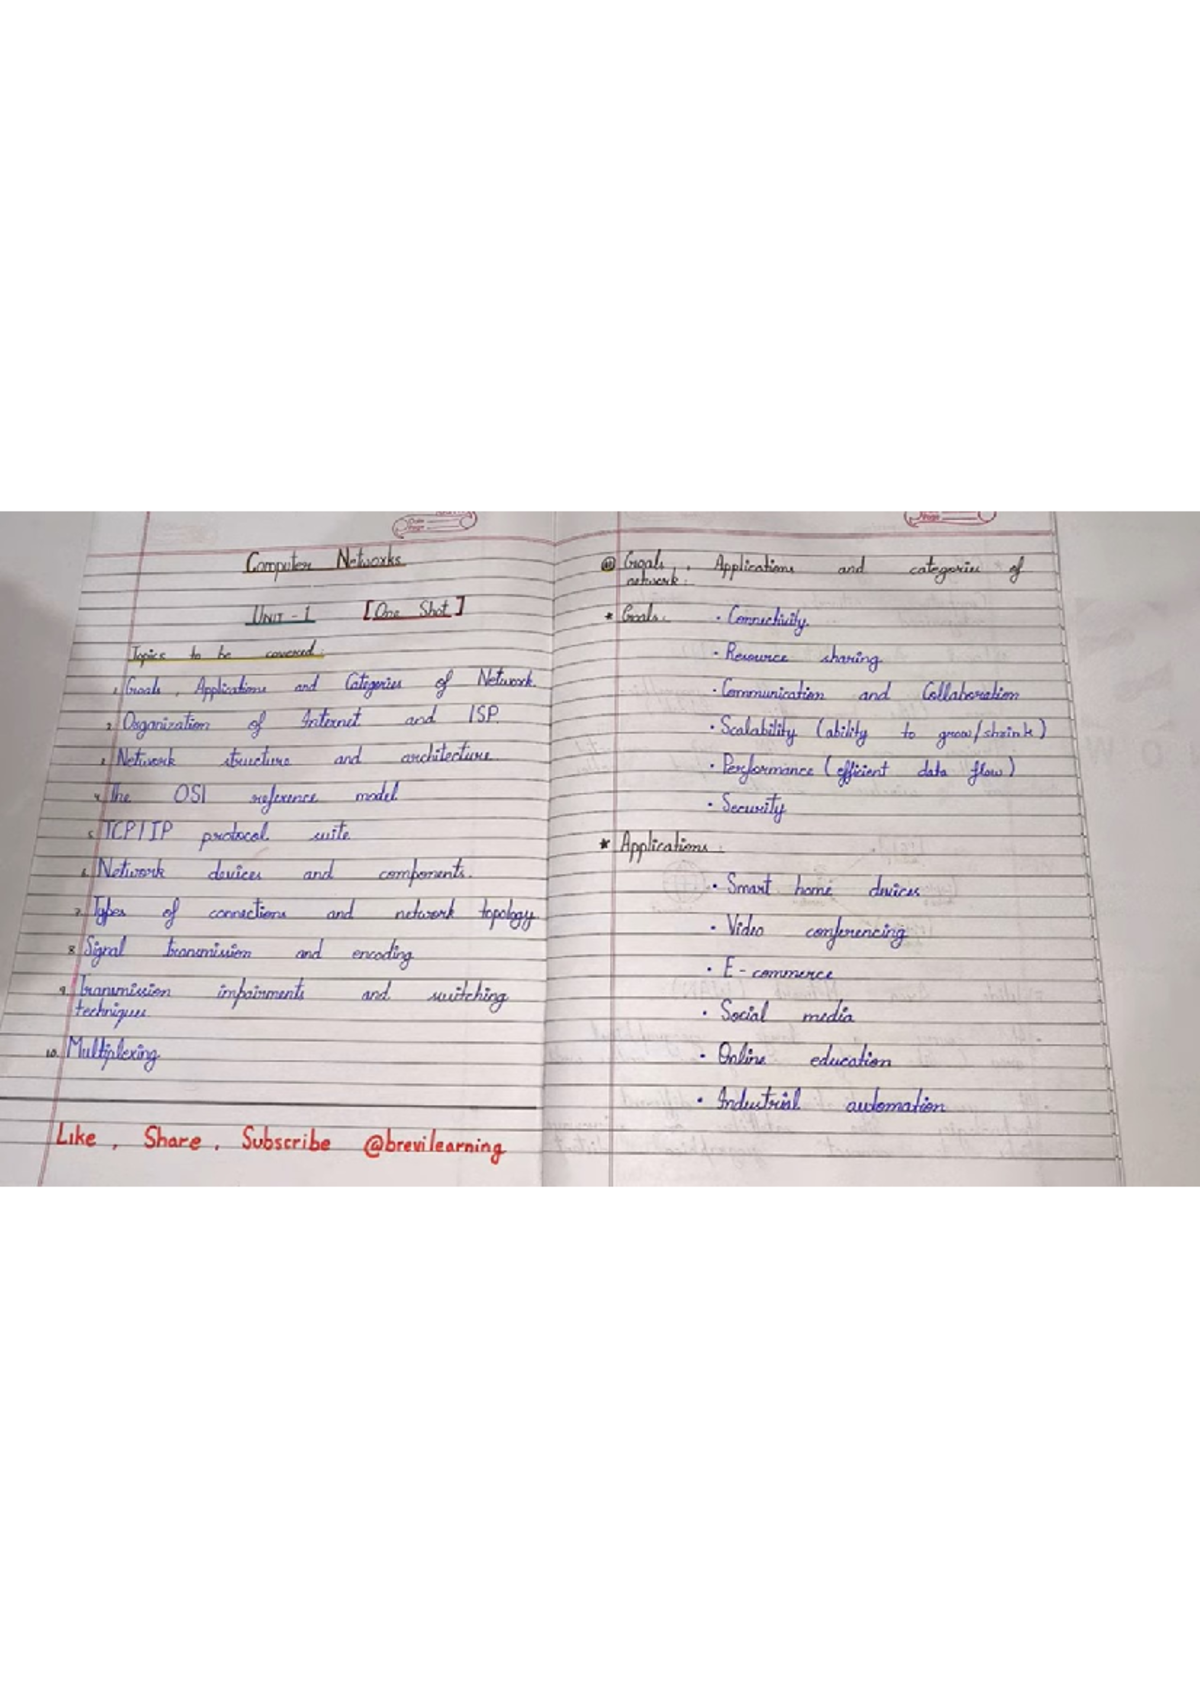 Computer Networks
UNIT - 1 [One Shot]
Topics to be covered:
1. Goals, Applications and Categories of Network.
2. Organization of Internet and ISP
3. Network structure and architecture
4. The OSI reference model
5. TCP/IP protocol suite
6. Network devices and components.
7. Types of connections and network topology
8. Signal transmission and encoding
9. Transmission impairments and switching
techniques
10. Multiplexing
Like, Share, Subscribe @brevilearning
Goals, Applications and categories of
network:
* Goals:
• Connectivity
• Resource sharing
• Communication and Collaboration
• Scalability (ability to grow/shrink)
• Performance (efficient data flow)
• Security
* Applications:
• Smart home devices
• Video conferencing
• E-commerce
• Social media
• Online education
• Industrial automation